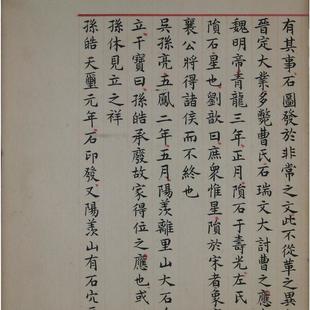 有其事石圖發於非常之文此不從革之異
晉定大業多斃曹氏石瑞文大討曹之應
魏明帝青龍三年正月隕石于壽光左氏
隕石星也劉歆曰庶衆惟星隕於宋者象
襄公將得諸侯而不終也
吳孫亮五鳳二年五月陽羨離里山大石
立干寶曰孫皓承廢故家得位之應也或
孫休見立之祥
孫皓天璽元年石印發又陽羨山有石穴